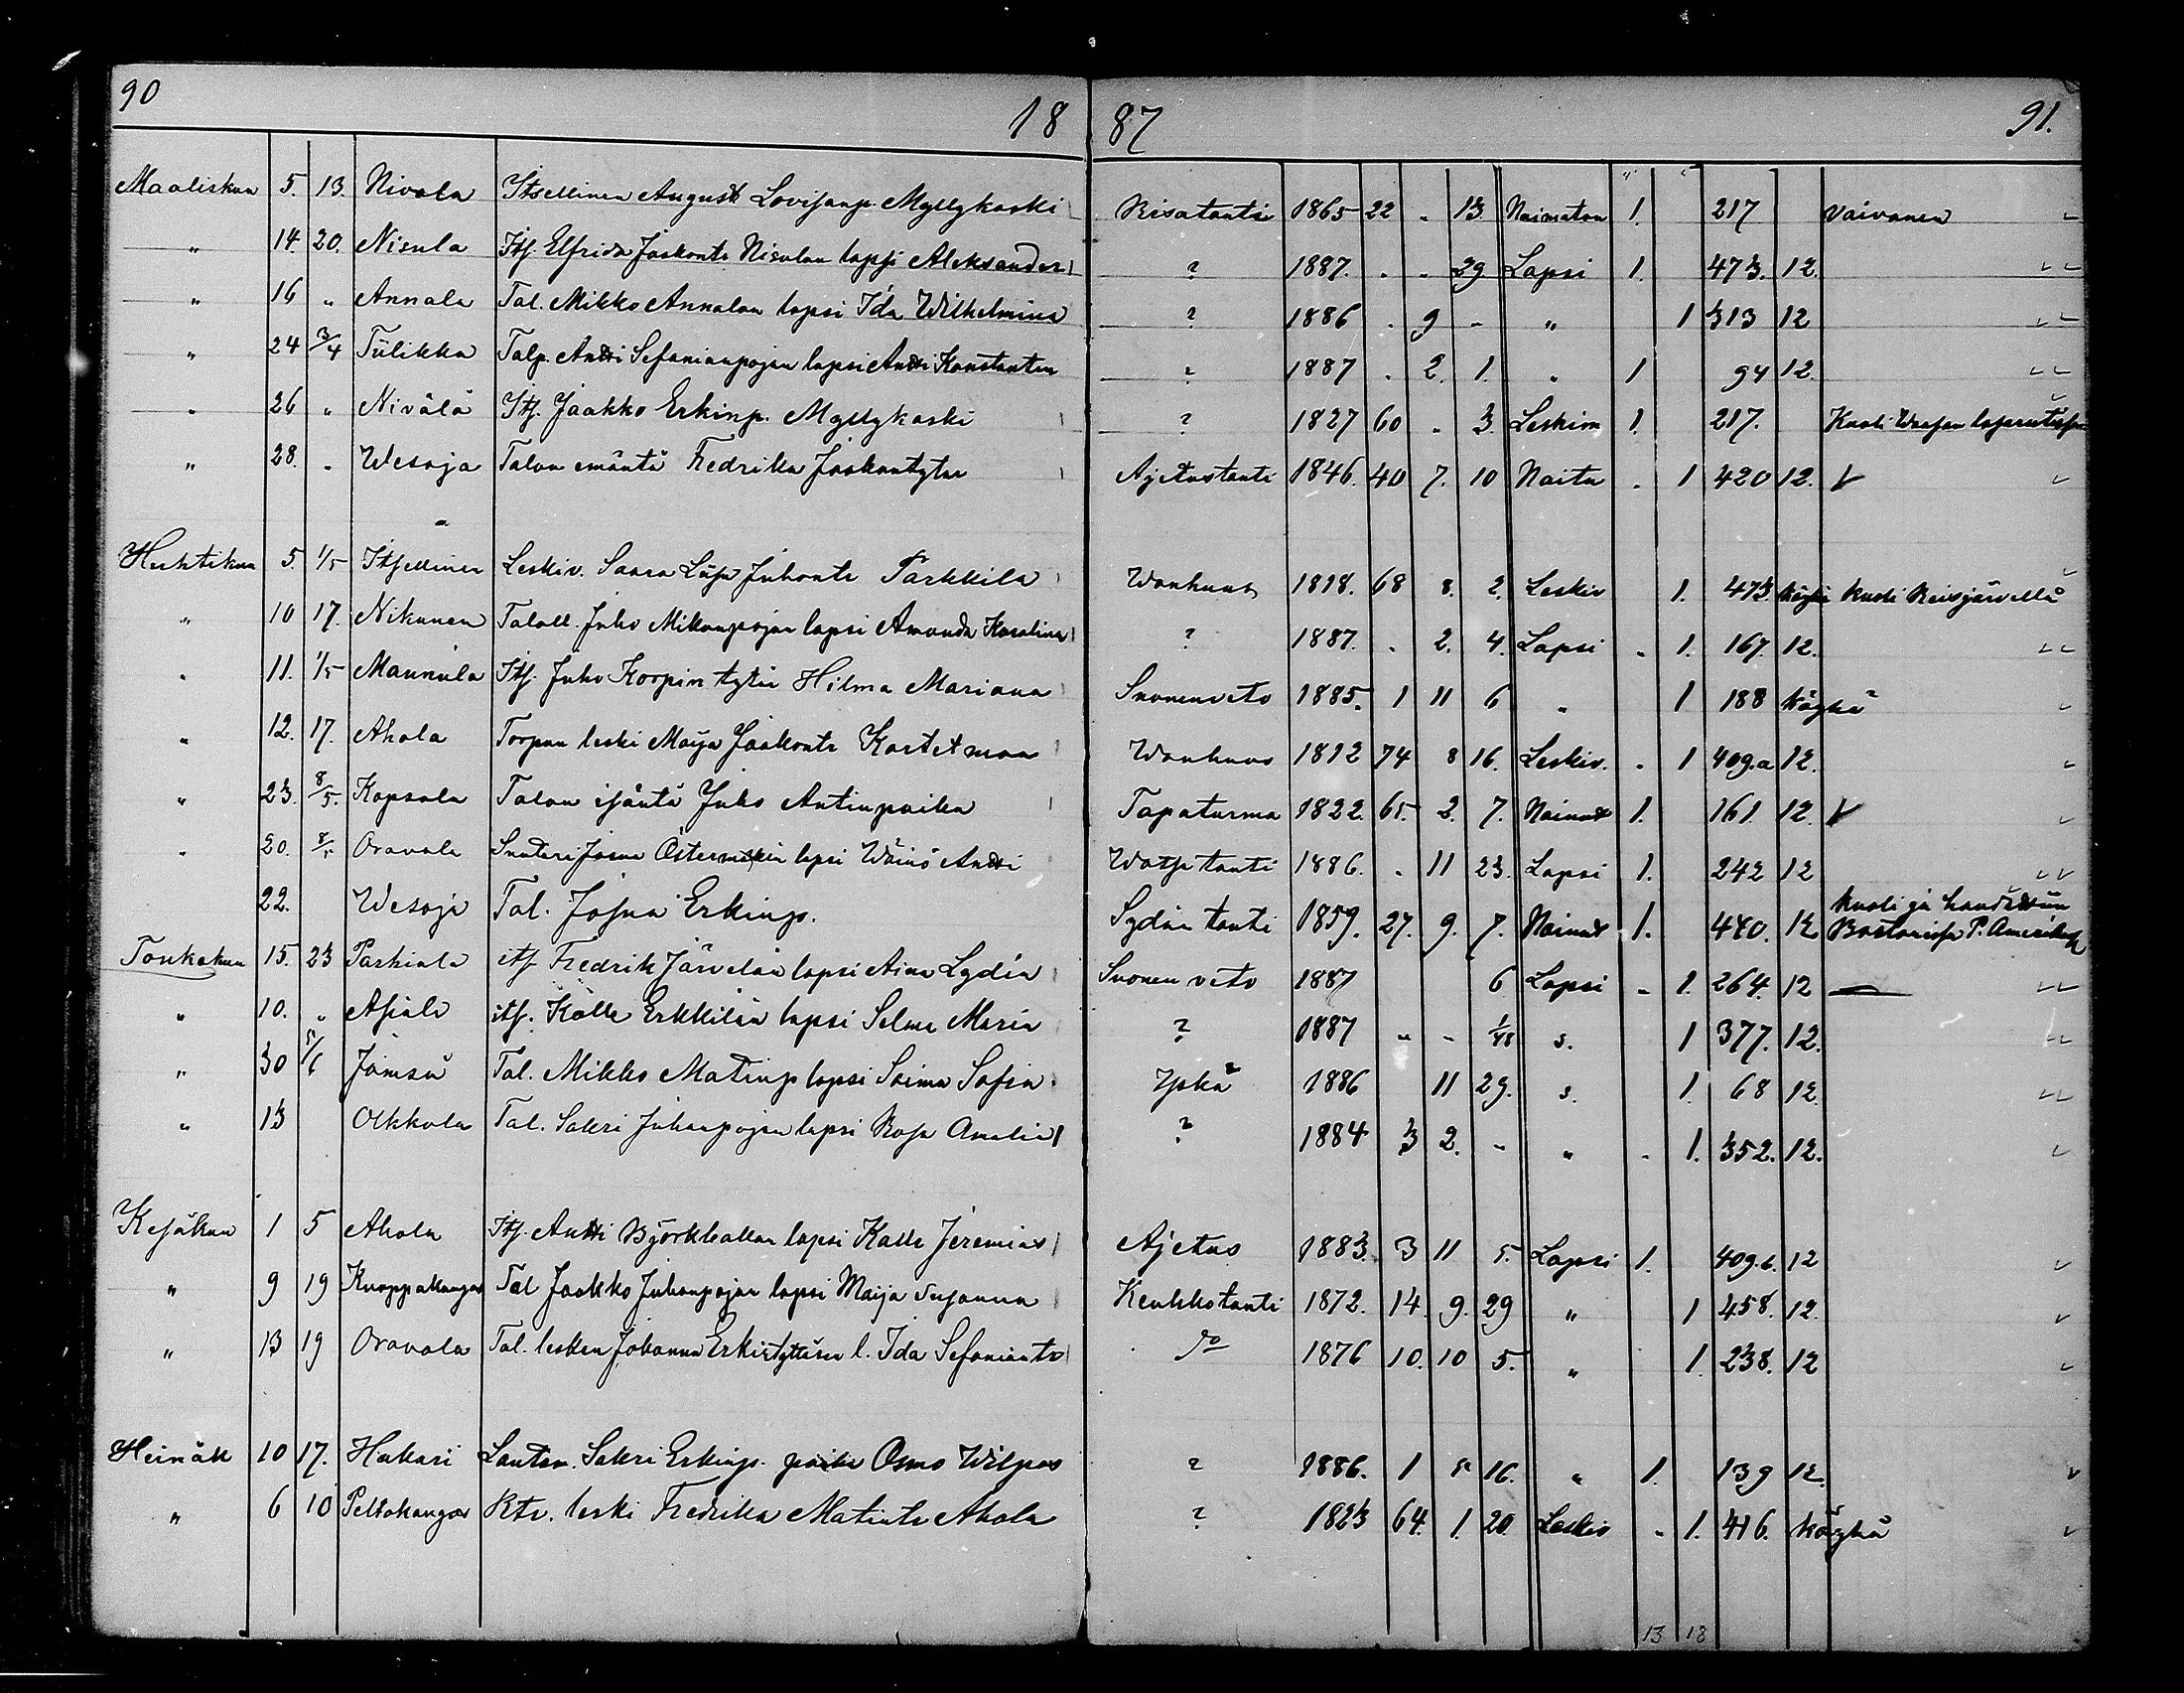 90
18 87
91.
Maaliskuu 5. 13. Nivala Itsellinen August Lovisanp. Myllykoski Risatauti 1865 22 „ 13 Naimaton 1. 217 Vaivanen
„ 14. 20. Nisula Its. Elfrida Jaakontr Nisulan lapsi Aleksander ? 1887. „ „ 29 Lapsi 1. 473. 12.
„ 16 „ Annala Tal. Mikko Annalan lapsi Ida Wilhelmina ? 1886 . 9 - „ 1 313 12
„ 24 3/4 Tulikka Talp. Antti Sefanianpojan lapsi Antti Konstantin ? 1887 . 2. 1. „ 1 94 12.
„ 26 „ Nivälä Its. Jaakko Erkinp. Myllykoski ? 1827 60 „ 3. Leskim 1. 217. Kuoli
„ 28. „ Wesoja Talon emäntä Fredrika Jaakontytär Ajetustauti 1846. 40 7. 10 Naitu . 1 420 12.
Huhtikuu 5. 1/5 Itsellinen Leskiv. Saara Liisa Juhontr Parkkila Wanhuus 1818. 68 8. 2. Leskiv 1. 473. köyhä kuoli Reisjärvellä
„ 10 17. Nikunen Talall. Juho Mikonpojan lapsi Amanda Karolina ? 1887. . 2. 4. Lapsi . 1. 167. 12.
„ 11. 1/5 Mannula Its. Juho Korpin tytär Hilma Mariana Suonenveto 1885. 1 11 6 „ 1 188 köyhä
„ 12. 17. Ahola Torpan leski Maija Jaakontr Kartetmaa Wanhuus 1812 74 8 16. Leskiv. . 1 409.a 12.
„ 23. 8/5. Kopsala Talon isäntä Juho Antinpoika Tapaturma 1822. 65. 2. 7. Nainut 1. 161. 12.
„ 20. 8/5 Oravala Suutari Josua Östermanin lapsi Wäinö Antti Watsatauti 1886. . 11 23. Lapsi 1. 242 12
22. Wesoja Tal. Josua Erkinp. Sydän tauti 1859. 27. 9. 7. Nainut 1. 440. 12. kuoli ja haudattiin
Bostonissa P. Amerika
Toukokuu 15. 23 Parkiala its. Fredrik Järvelän lapsi Aina Lydia Suonen veto 1887 6 Lapsi - 1. 264. 12
„ 10. „ Asiala its. Kalle Erkkilän lapsi Selma Maria ? 1887 - - 1/48 s. 1 377. 12.
„ 30 5/6 Jämsä Tal. Mikko Matinp lapsi Saima Sofia Yskä 1886 11 29. s. 1. 68 12.
„ 13 Olkkola Tal. Sakri Juhanpojan lapsi Rosa Amalia ? 1884 3 2. - „ - 1. 352. 12.
Kesäkuu 1 5 Ahola Its. Antti Björkbackan lapsi Kalle Jeremias Ajetus 1883. 3 11 5. Lapsi 1. 409.b. 12
„ 9 19 Knoppakangas Tal Jaakko Juhanpojan lapsi Maija Susanna Keuhkotauti 1872. 14. 9. 29 „ 1 458. 12.
„ 13 19 Oravala Tal. lesken Johanna Erkintyttären l. Ida Sefaniantr do 1876 10. 10 5. „ 1. 238. 12
Heinäk 10 17. Hakari Lautam. Sakri Erkinp. poika Osmo Wilpas ? 1886. 1 „ 16. „ 1. 139 12.
„ 6 10 Peltokangas Rtr. leski Fredrika Matintr Ahola ? 1823 64. 1. 20. Leskiv „ 1. 416. köyhä
13 18